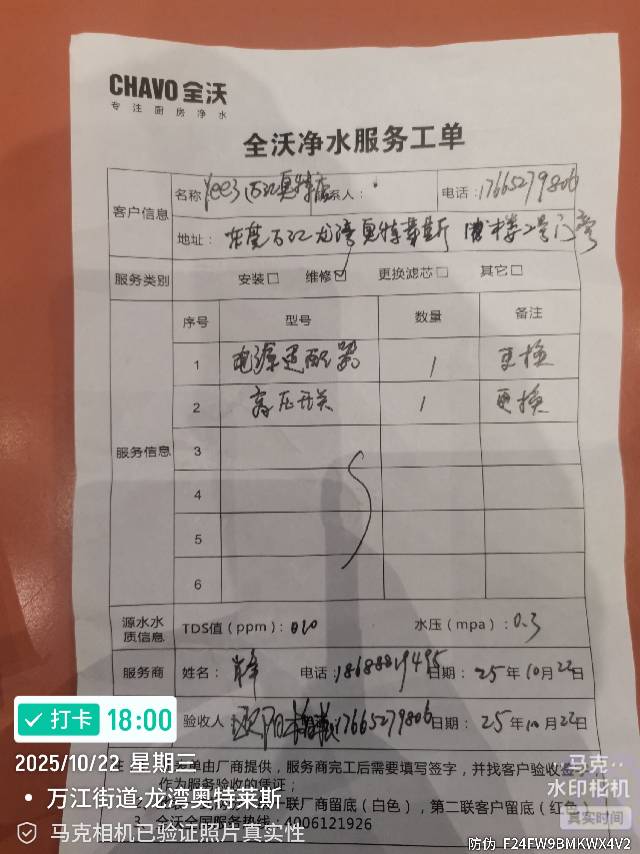 CHAVO 全沃
专注厨房净水
全沃净水服务工单
客户信息
名称 yee3万江奥特店 联系人: 电话: 17665279806
地址: 东莞万江龙湾奥特莱斯 楼2号门旁
服务类别 安装□ 维修☑ 更换滤芯□ 其它□
服务信息
序号 型号 数量 备注
1 电源适配器 1 更换
2 高压开关 1 更换
3
4
5
6
源水水质信息 TDS值(ppm): 010 水压(mpa): 0.3
服务商 姓名: 电话: 18688819495 日期: 25年10月22日
验收人 欧阳 17665279806 日期: 25年10月22日
注 单由厂商提供,服务商完工后需要填写签字,并找客户验收签
作为服务验收的凭证;
联厂商留底(白色),第二联客户留底(红色)
3、全沃全国服务热线: 4006121926
打卡 18:00
2025/10/22 星期三
万江街道·龙湾奥特莱斯
马克相机已验证照片真实性
马克
水印相机
真实时间
防伪 F24FW9BMKWX4V2